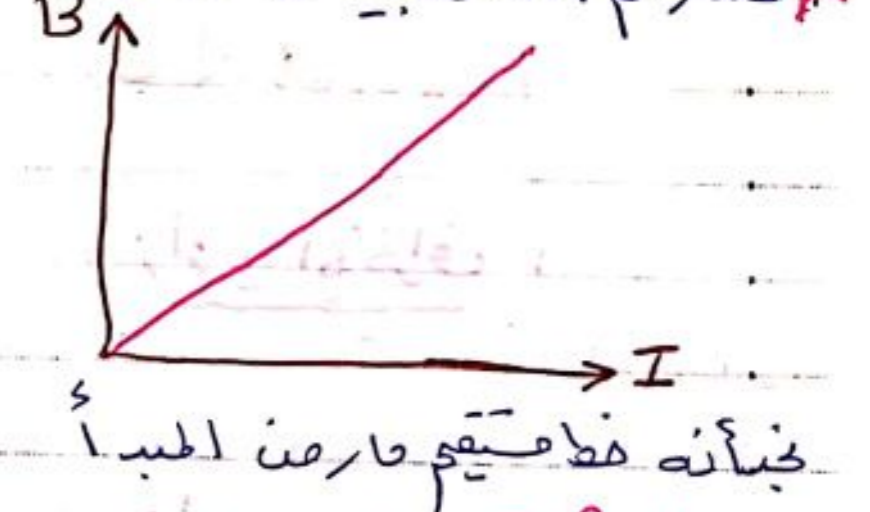 B
I
نجد أنه خط مستقيم مار من المبدأ